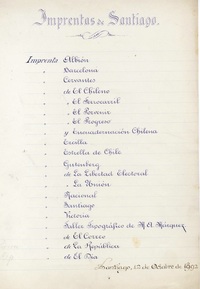 Imprentas de Santiago.
Imprenta Albión
" Barcelona
" Cervantes
" de El Chileno
" " El Ferrocarril
" " El Porvenir
" " El Progreso
" y Encuadernación Chilena
" Ercilla
" Estrella de Chile
" Gutenberg
" de La Libertad Electoral
" " La Unión
" Nacional
" Santiago
" Victoria
" Taller Tipográfico de
" de El Correo
" de La República
" de El Día
Santiago, 13 de Octubre de